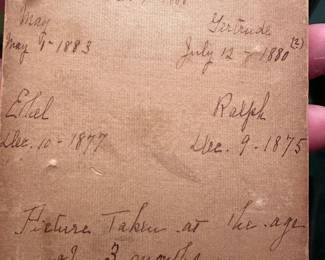 May Gertrude
May 9 - 1883 July 12 - 1880 (?)
Ethel Ralph
Dec. 10 - 1877 Dec. 9 - 1875
Picture Taken at the age
of 3 months